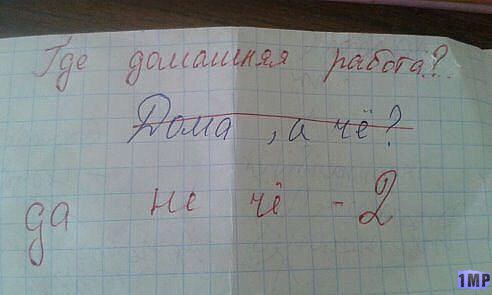 Где домашняя работа?
Дома, а чё?
да не чё - 2
1MP